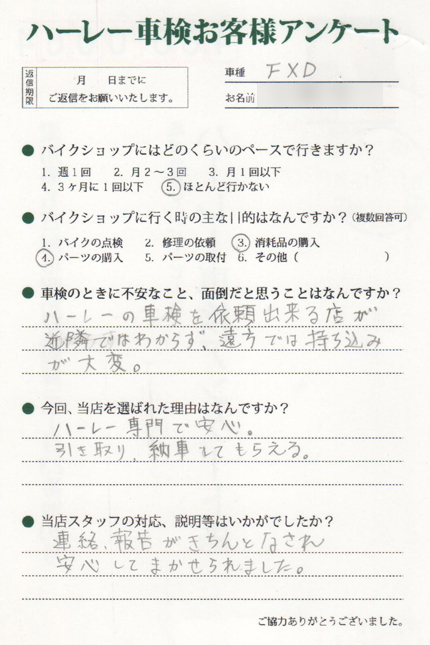 ハーレー車検お客様アンケート
返信期限
月　日までに
ご返信をお願いいたします。
車種 FXD
お名前
● バイクショップにはどのくらいのペースで行きますか？
1. 週１回　2. 月２～３回　3. 月１回以下
4. ３ヶ月に１回以下　5. ほとんど行かない
● バイクショップに行く時の主な目的はなんですか？（複数回答可）
1. バイクの点検　2. 修理の依頼　3. 消耗品の購入
4. パーツの購入　5. パーツの取付　6. その他（　　　　）
● 車検のときに不安なこと、面倒だと思うことはなんですか？
ハーレーの車検を依頼出来る店が
近隣ではわからず、遠方では持ち込み
が大変。
● 今回、当店を選ばれた理由はなんですか？
ハーレー専門で安心。
引き取り、納車してもらえる。
● 当店スタッフの対応、説明等はいかがでしたか？
連絡、報告がきちんとなされ
安心してまかせられました。
ご協力ありがとうございました。